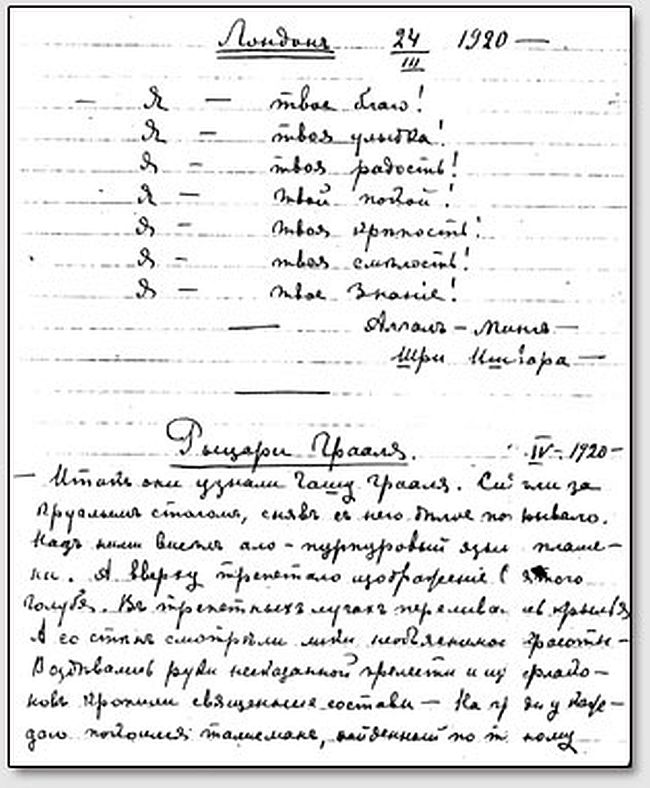 Лондонъ 24/III 1920 —
— Я — твое благо!
Я — твоя улыбка!
Я — твоя радость!
Я — твой покой!
Я — твоя крѣпость!
Я — твоя смѣлость!
Я — твое знаніе!
Аллалъ - Мингъ —
Шри Ишвара —
Рыцари Грааля. IV - 1920 —
— Итакъ они узнали Чашу Грааля. за
круглымъ столомъ, снявъ съ него бѣлое по крывало.
Надъ ними висѣлъ ало - пурпуровый язы пламе -
ни. А вверху трепетало изображеніе С ятого
голубя. Въ трепетныхъ лучахъ перелива ев крылья
А со стѣнъ смотрѣли лики необъяснимое красоты —
Воздѣвались руки несказанной прелести и из флако -
новъ кропили священные составы — На гр ди у каж -
даго покоился талисманъ, найденный по т ному